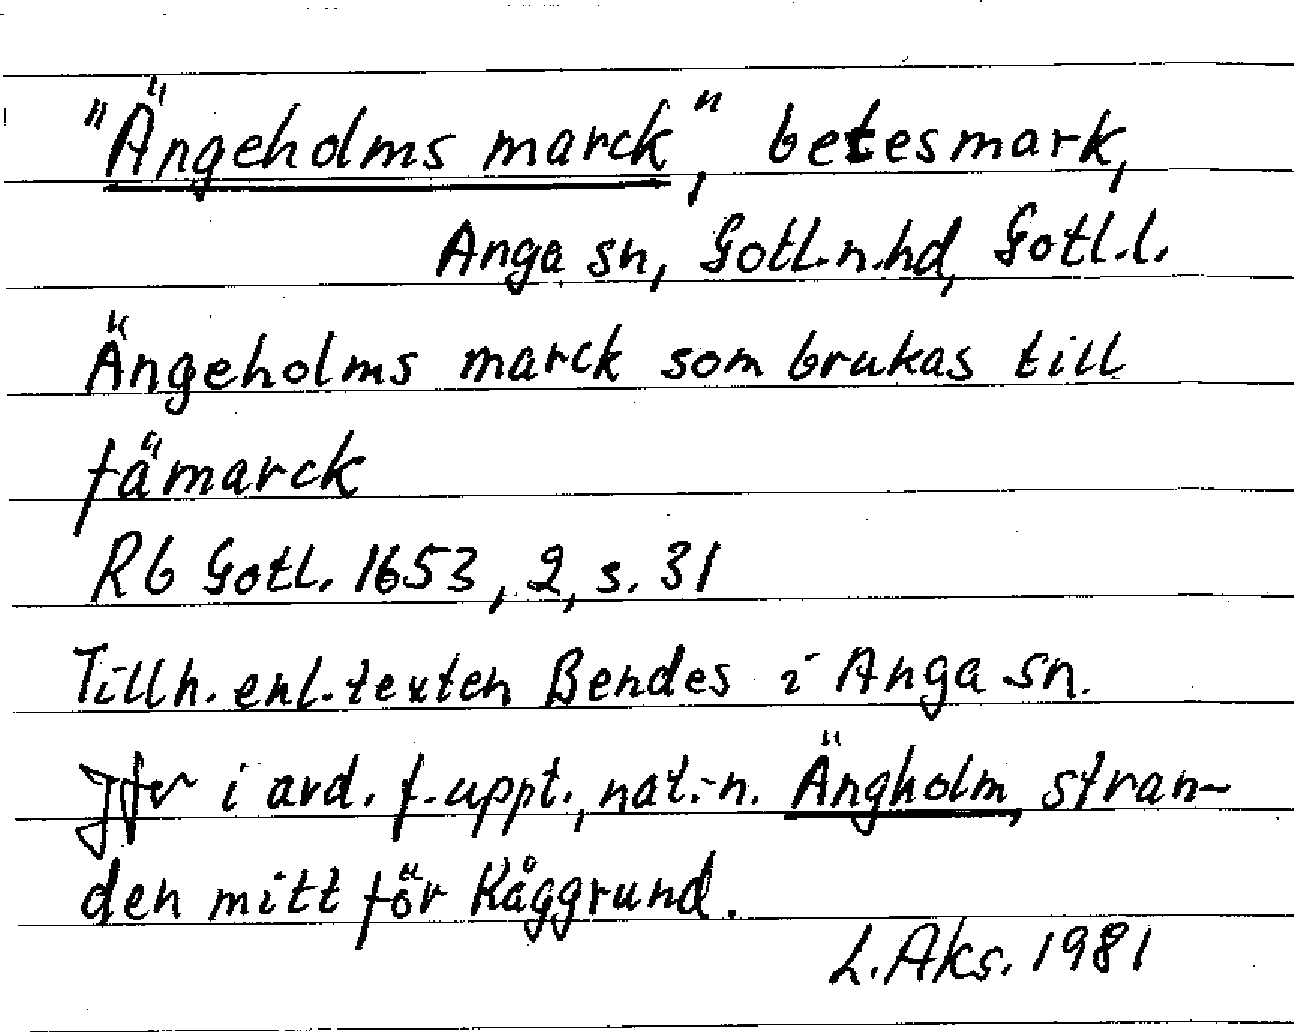 "Ängeholms marck", betesmark,
Anga sn, Gotl.n.hd, Gotl.l.
Ängeholms marck som brukas till
fämarck
Rb Gotl. 1653, 2, s. 31
Tillh. enl. texten Bendes i Anga sn.
Jfr i avd. f. uppt., nat.-n. Ängholm, stran-
den mitt för Kåggrund.
L. Aks. 1981